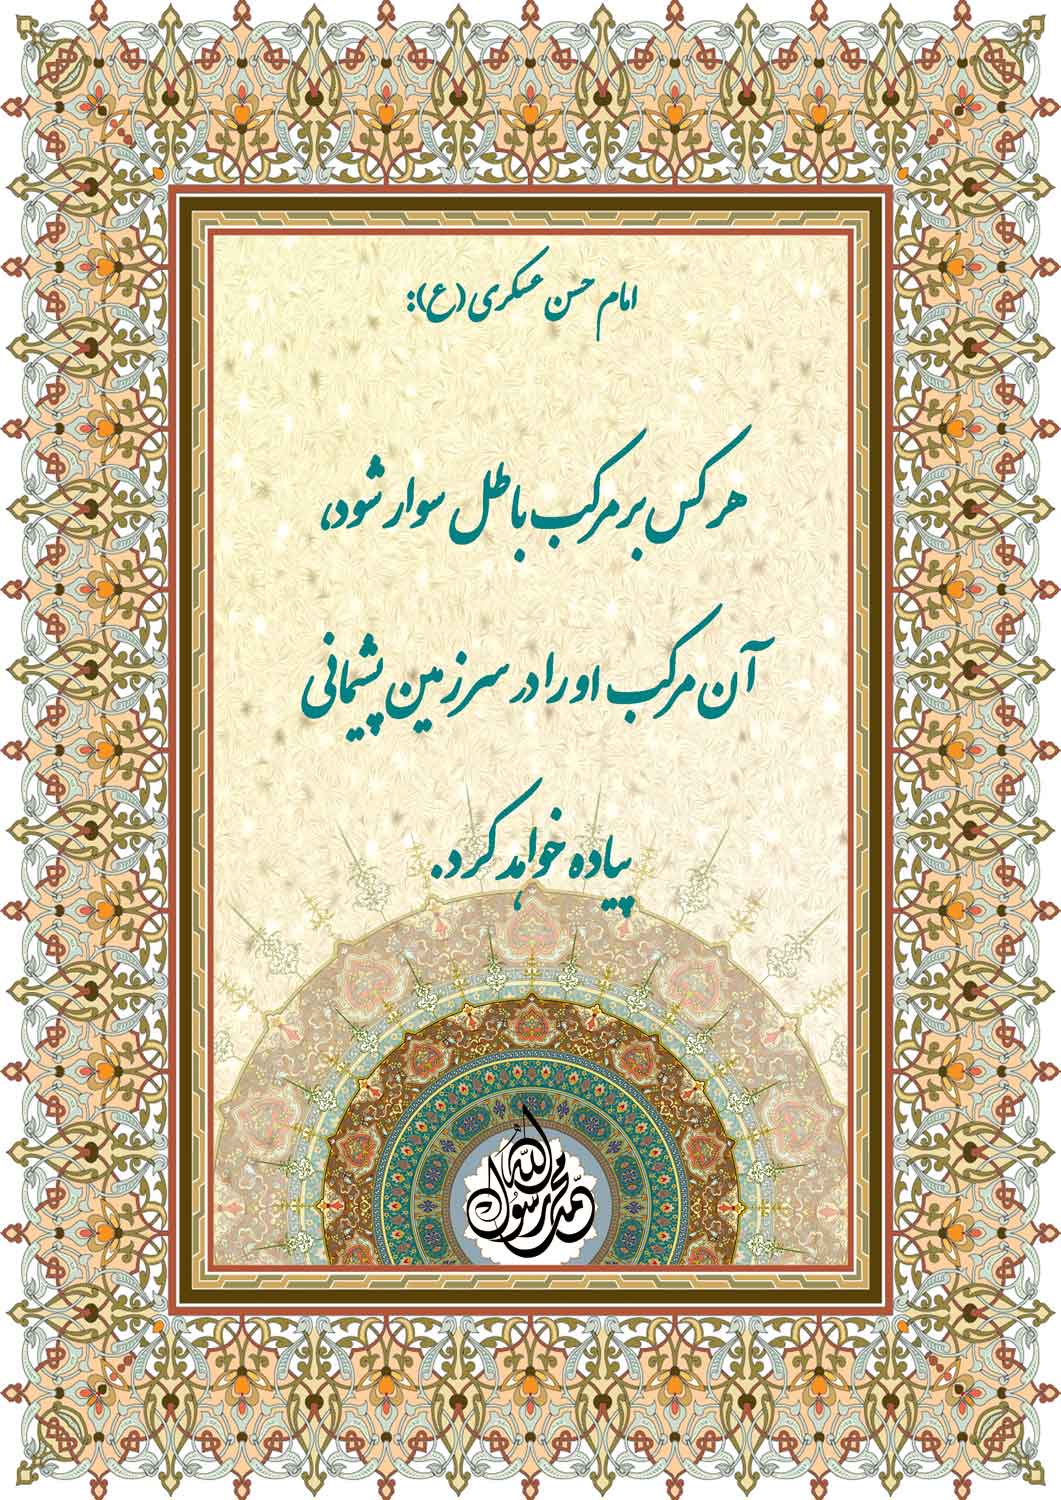 امام حسن عسکری (ع):
هر کس بر مرکب باطل سوار شود،
آن مرکب او را در سرزمین پشیمانی
پیاده خواهد کرد.
محمد رسول الله